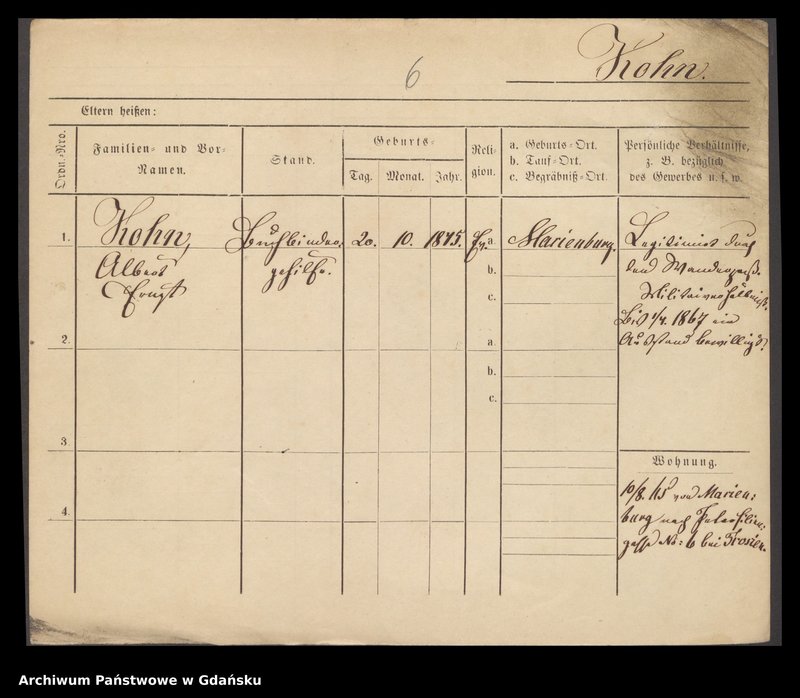 Kohn.
6
Eltern heißen:
Ordn.-Nro.
Familien- und Vor-
Namen.
Stand.
Geburts-
Tag.
Monat.
Jahr.
Reli-
gion.
a. Geburts-Ort.
b. Tauf-Ort.
c. Begräbniß-Ort.
Persönliche Verhältnisse,
z. B. bezüglich
des Gewerbes u. s. w.
1.
Kohn,
Albert
Ernst
Buchbinder-
gehilfe.
20.
10.
1845.
Ev.
a.
Marienburg.
b.
c.
Legitimirt durch
den Wanderpaß.
Militairverhältniß.
Bis 1/4. 1867 ein
Ausstand bewilligt.
2.
a.
b.
c.
3
4.
Wohnung.
10/8. 65 von Marien-
burg nach Petersilien-
gasse No: 6 bei
Archiwum Państwowe w Gdańsku